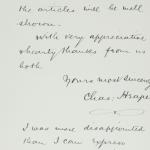 the articles will be well
shown.
With very appreciative
& hearty thanks from us
both
Yours most sincerely
Chas.
I was more disappointed
than I can express